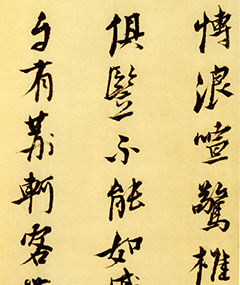 博浪喧驚椎
俱豎不能如
有荆軻客